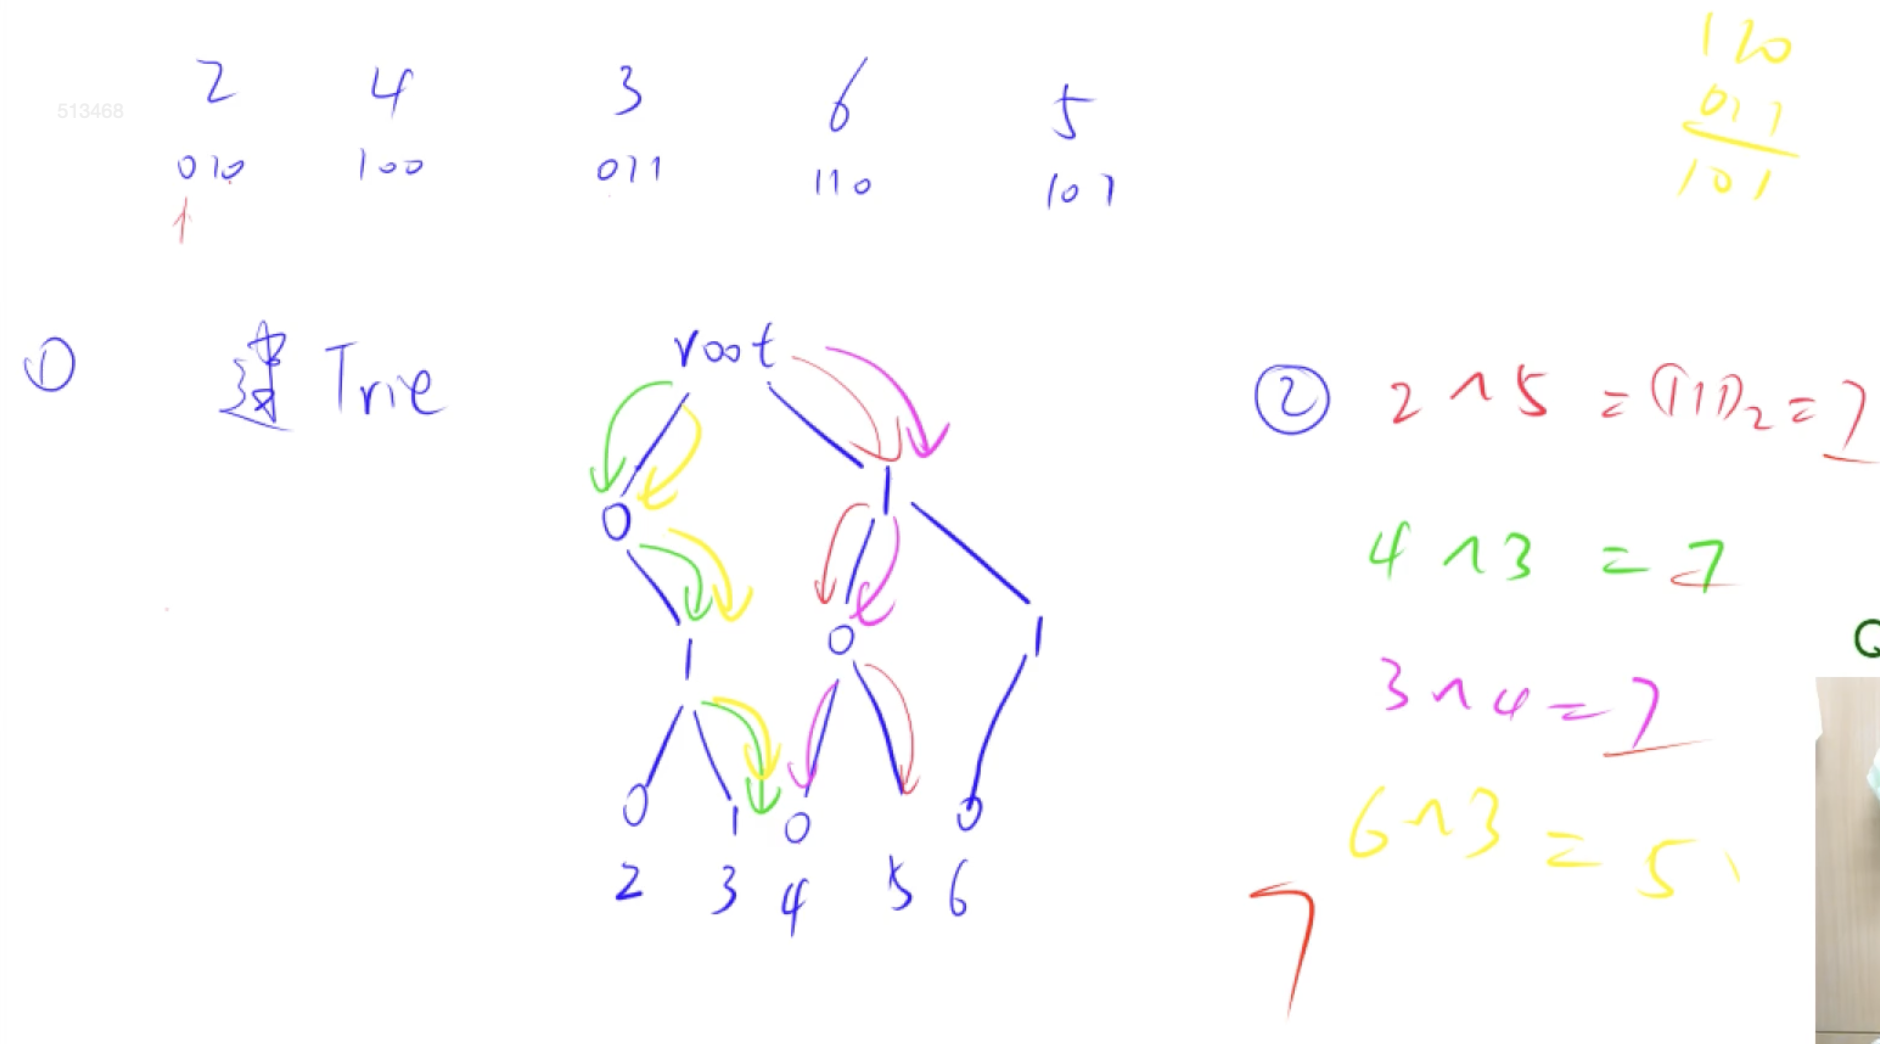 2 4 3 6 5
513468
010 100 011 110 101
110
011
101
① 建 Trie
root
0 1
1 0 1
0 1 0 0
2 3 4 5 6
② 2^5=(111)₂=7
4^3=7
3^4=7
6^3=5
7